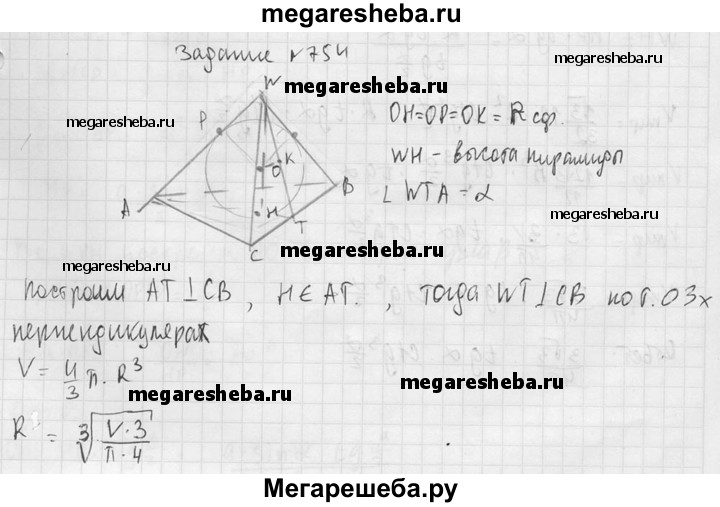 megaresheba.ru
Задание №754
W
megaresheba.ru
OH=OP=OK=Rсф.
megaresheba.ru
P
WH - высота пирамиды
O K
∠ WTA = α
megaresheba.ru
B
A
H
T
C
megaresheba.ru
megaresheba.ru
построим AT⊥CB, H∈AT., тогда WT⊥CB по т. О 3х
перпендикулярах
V = 4/3 π·R³
megaresheba.ru
megaresheba.ru
R = ∛(V·3/π·4)
Мегарешеба.ру